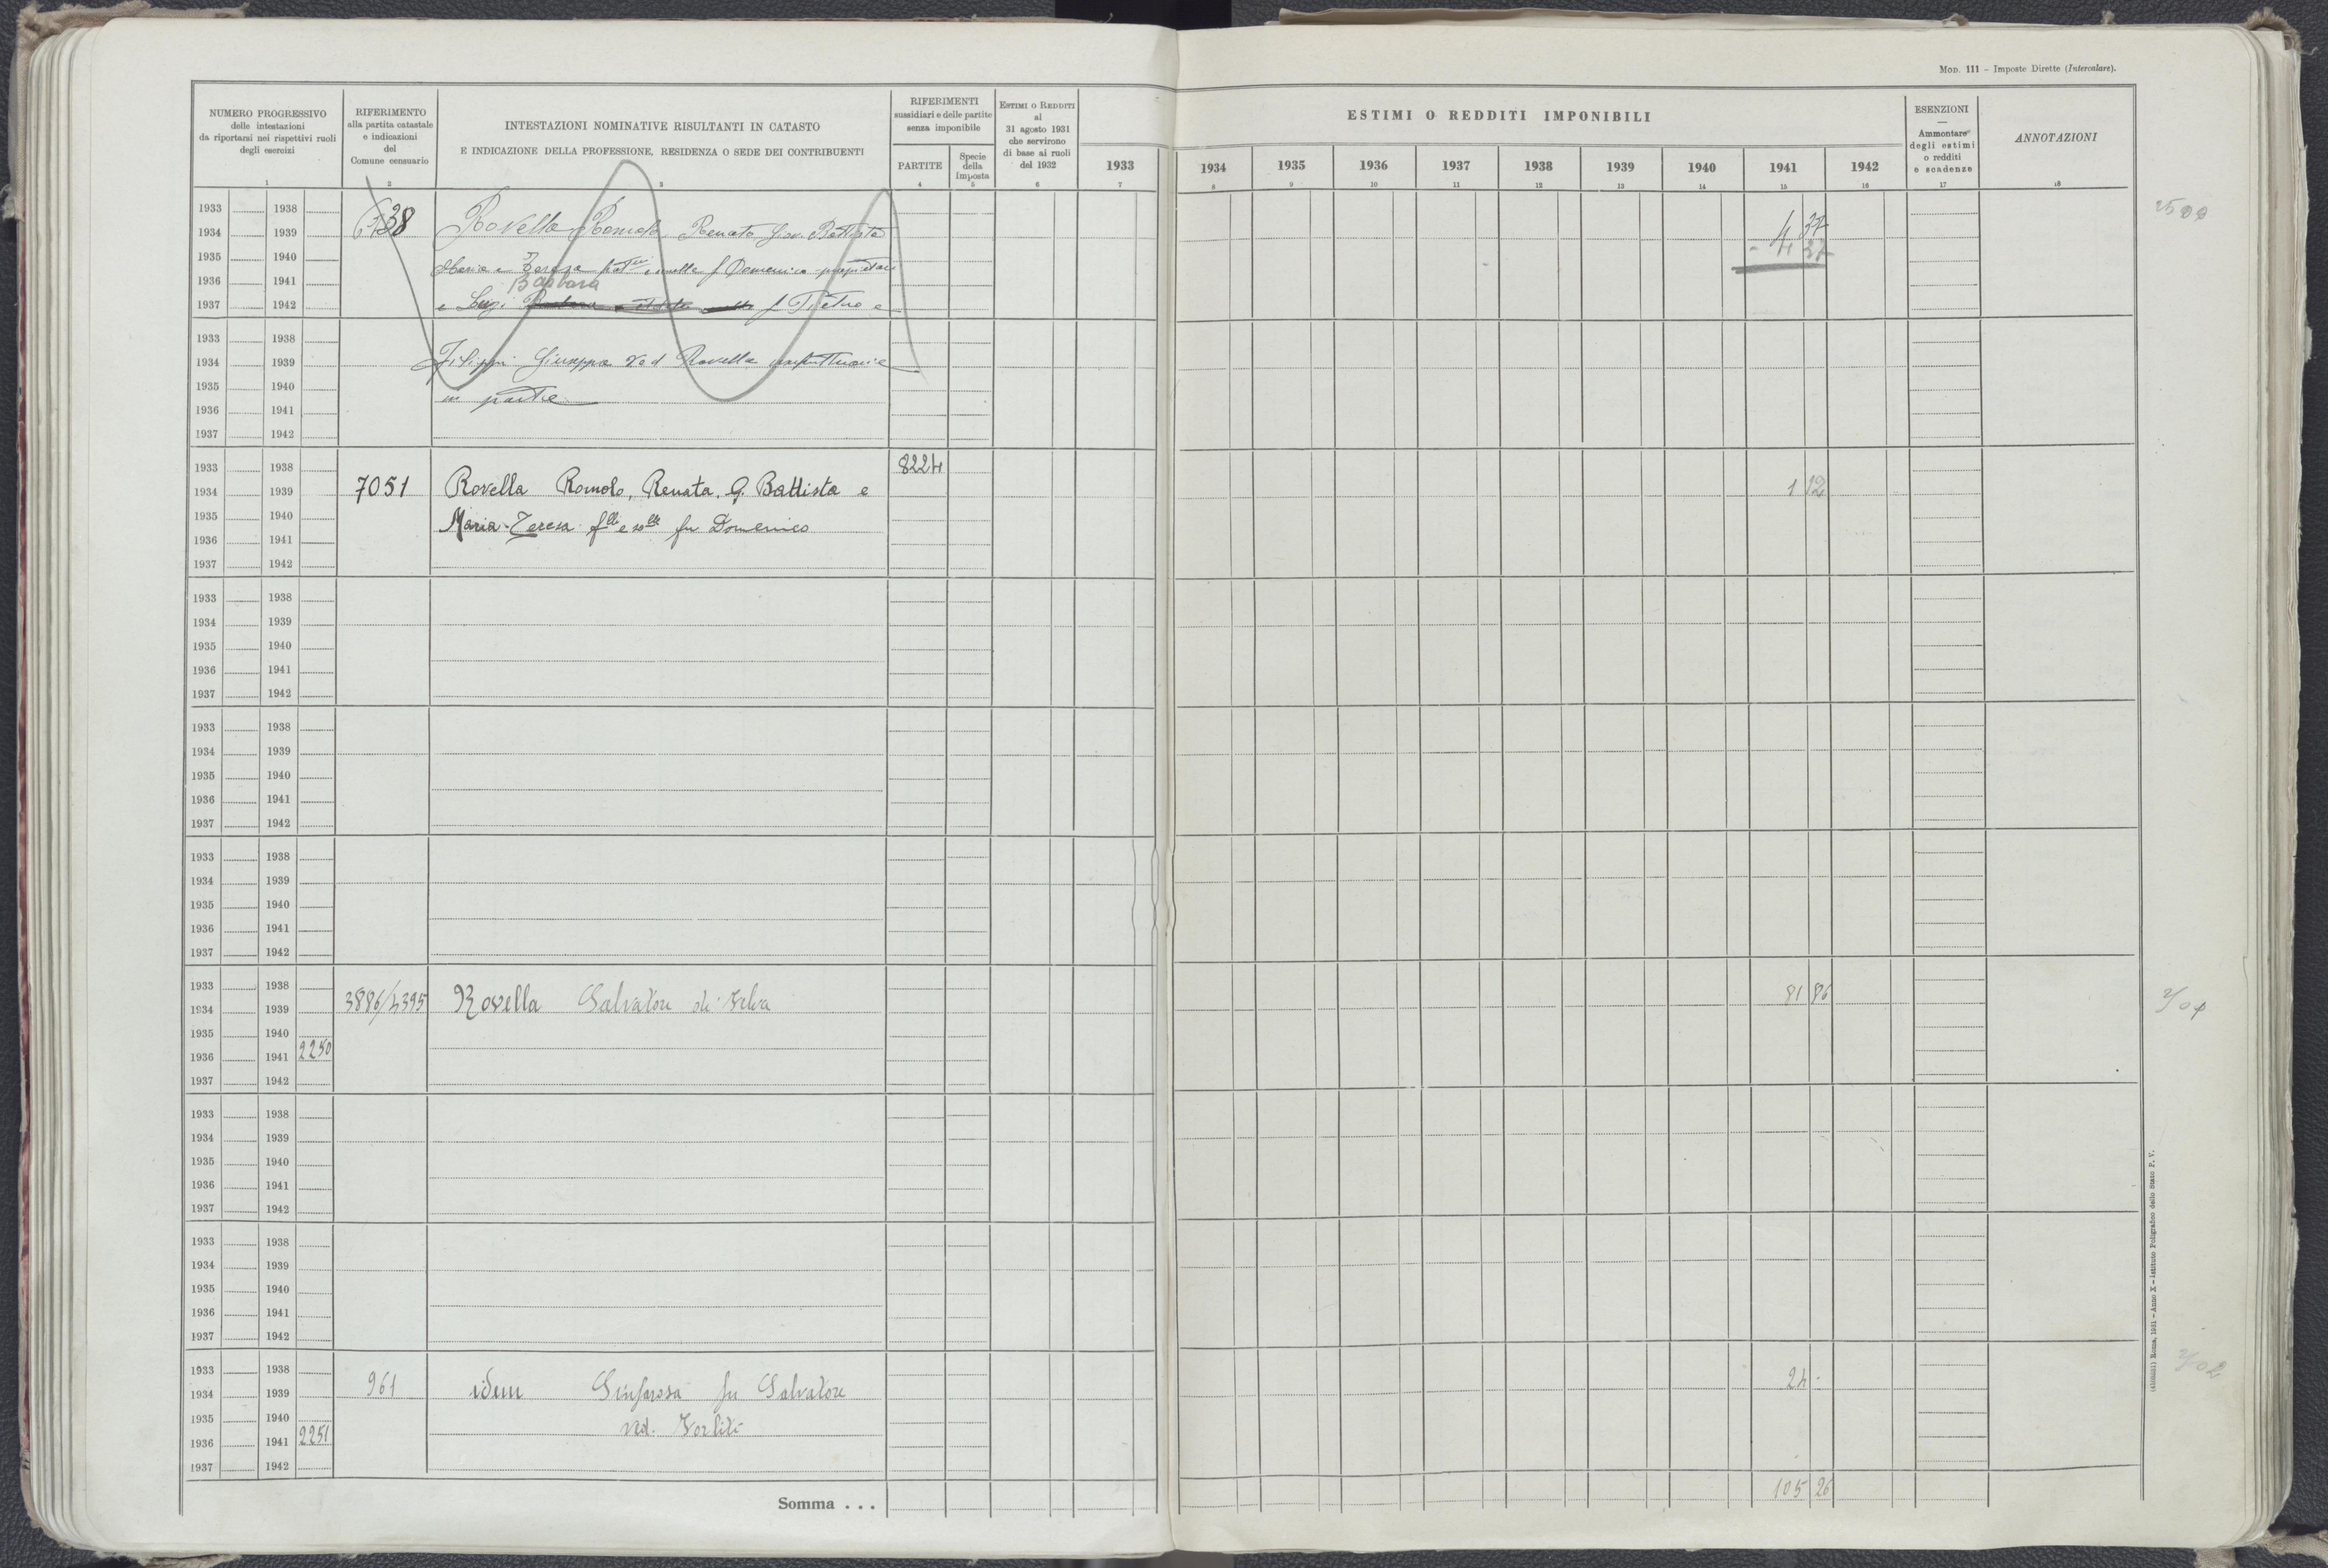 MOD. 111 – Imposte Dirette (Intercalare).
NUMERO PROGRESSIVO
delle intestazioni
da riportarsi nei rispettivi ruoli
degli esercizi
RIFERIMENTO
alla partita catastale
e indicazioni
del
Comune censuario
INTESTAZIONI NOMINATIVE RISULTANTI IN CATASTO
E INDICAZIONE DELLA PROFESSIONE, RESIDENZA O SEDE DEI CONTRIBUENTI
RIFERIMENTI
sussidiari e delle partite
senza imponibile
PARTITE
Specie
della
Imposta
ESTIMI O REDDITI
al
31 agosto 1931
che servirono
di base ai ruoli
del 1932
ESTIMI O REDDITI IMPONIBILI
1933 1934 1935 1936 1937 1938 1939 1940 1941 1942
ESENZIONI
—
Ammontare
degli estimi
o redditi
e scadenze
ANNOTAZIONI
1 2 3 4 5 6 7 8 9 10 11 12 13 14 15 16 17 18
1933 1938
1934 1939 Rovella Romolo Renato Giov. Battista 4 37
1935 1940 Maria e Teresa e f Domenico - 4 37
Barbara
1936 1941
1937 1942 e Luigi f Pietro e
1933 1938
1934 1939 Filippi Giuseppa ved Rovella usufruttuaria
1935 1940
1936 1941 in parte
1937 1942
1933 1938 8224
1934 1939 7051 Rovella Romolo, Renata, G. Battista e 1 12
1935 1940 Maria-Teresa flli e slle fu Domenico
1936 1941
1937 1942
1933 1938
1934 1939
1935 1940
1936 1941
1937 1942
1933 1938
1934 1939
1935 1940
1936 1941
1937 1942
1933 1938
1934 1939
1935 1940
1936 1941
1937 1942
1933 1938
1934 1939 3886/4395 Rovella Salvatore di 81 86
1935 1940
1936 1941 2250
1937 1942
1933 1938
1934 1939
1935 1940
1936 1941
1937 1942
1933 1938
1934 1939
1935 1940
1936 1941
1937 1942
1933 1938
1934 1939 961 idem Sinforosa fu Salvatore 24 -
1935 1940 ved.
1936 1941 2251
1937 1942
Somma . . . 105 26
Roma, 1931 – Anno X – Istituto Poligrafico dello Stato P. V.